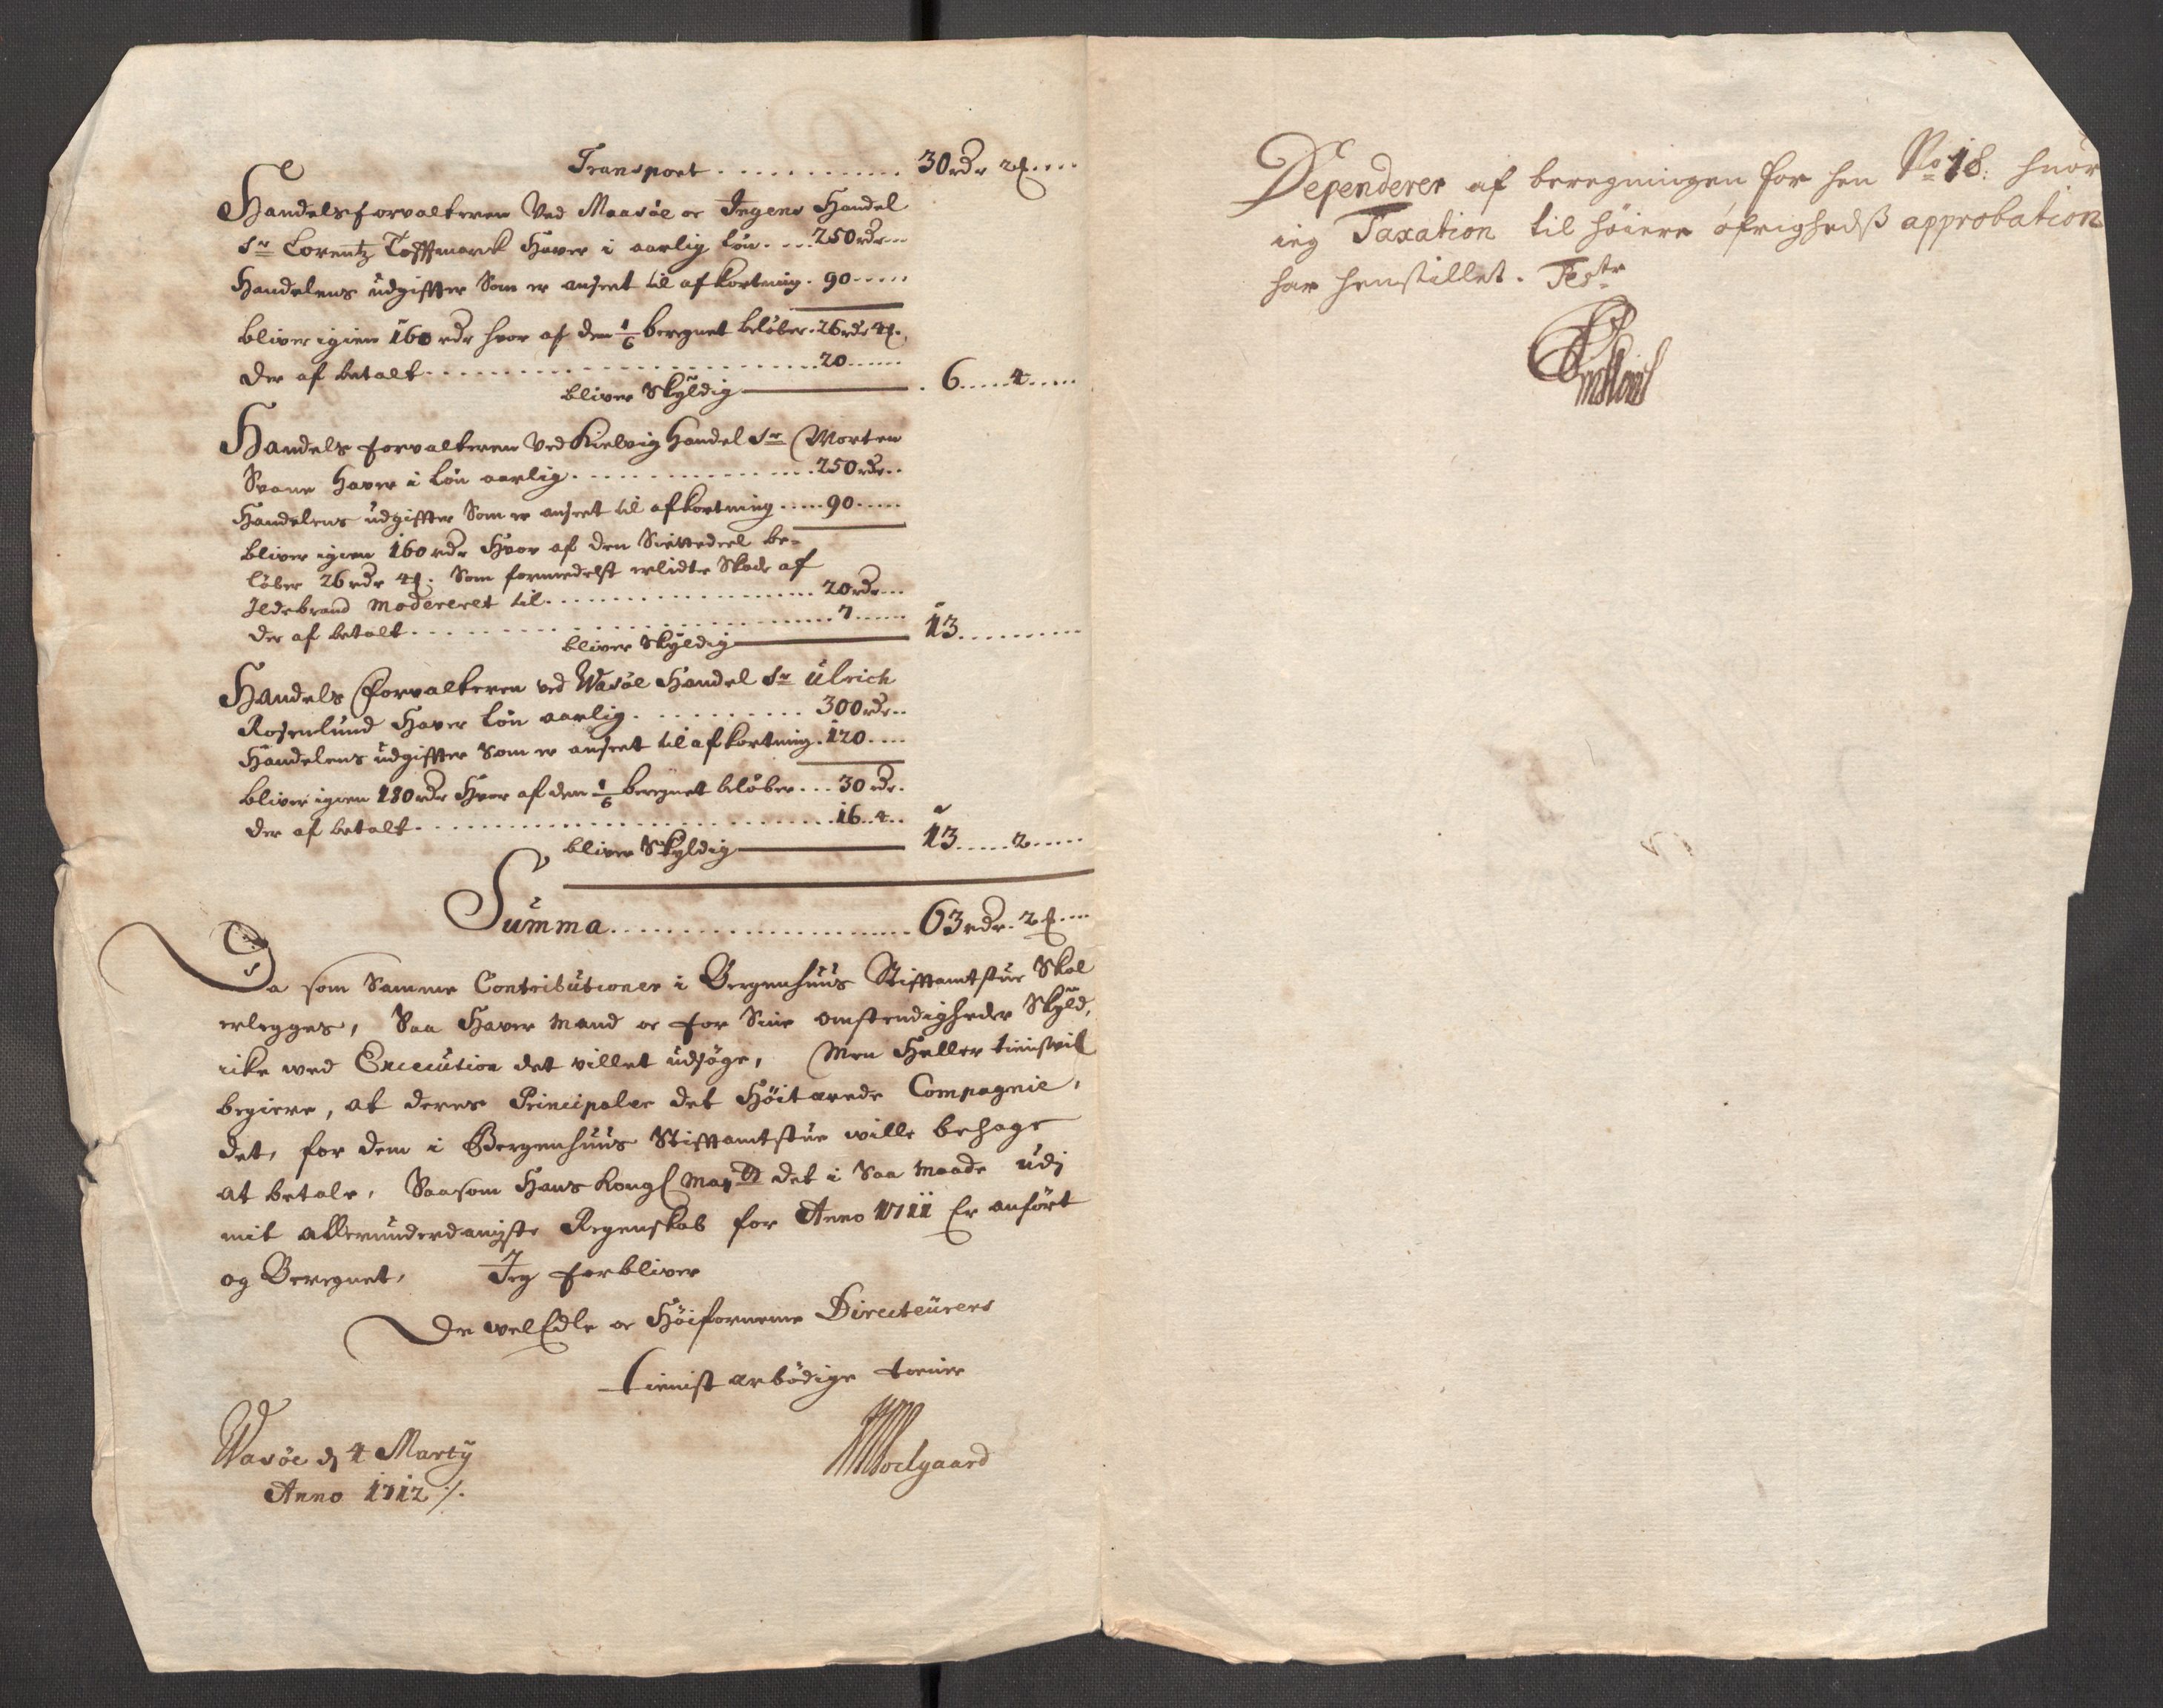 Transport . . . . . . . . . . . . 30 rdr 2 ß . . . .
Handelsforvalteren Ved Maasöe oc Ingens Handel
Sr Lorentz Toffmarck Haver i aarlig Lön . . . 250 rdr . .
Handelens udgiffter Som er anseet til afkortning . 90 . . . . .
bliver igien 160 rdr hvor af den 1/6 beregnet belöber . 26 rdr 4 ß.
Der af betalt . . . . . . . . . . . . 20 . . . . .
bliver Skÿldig . 6 . . . . 4 . . . . .
Handels forvalteren Ved Kielvig Handel Sr Morten
Svane Haver i Lön aarlig . . . . . . . . . . . 250 rdr . .
Handelens udgiffter Som er anseet til afkortning . . . . 90 . . . . .
bliver igien 160 rdr Hvor af den Siettedeel be-
löber 26 rdr 4 ß. Som formedelst erlidte Skade af
Ildebrand modereret til . . . . . . . . . . . 20 rdr . . .
der af betalt . . . . . . . . . . . . . 7 . . . . .
bliver Skÿldig 13 . . . . . . . . .
Handels forvalteren ved Wasöe Handel Sr Ulrich
Rosenlund Haver Lön aarlig . . . . . . . . . 300 rdr . .
Handelens udgiffter Som er anseet til afkortning . 120 . . . .
bliver igien 180 rdr Hvor af den 1/6 beregnet belöber . . . 30 rdr .
der af betalt . . . . . . . . . . . . . 16 . . 4 . .
bliver Skÿldig 13 . . . . 2 . . . . .
Summa . . . . . . . . . . . . . . . 63 rdr . 2 ß . . .
Da som Samme Contributioner i Bergenhuus Stifftamtstue Skal
erlegges, Saa Haver mand oc for Sine omstendigheder Skÿld,
icke med Execution det villet udsöge, Men Heller tienstvil
begiere, at deres Principaler det Höitærede Compagnie,
det, for dem i Bergenhuus Stifftamtstue wille behage
at betale, Saasom Hans Kongl Maytt det i Saa maade udj
mit allerunderdanigste Regenskab for Anno 1711 Er anfört
og Beregnet, Jeg forbliver
De welEdle oc Höifornemme Directeurers
tienist ærbödige tiener
Wasöe d 4 Martÿ
Anno 1712 ./.
Soelgaard
Dependerer af beregningen for hen No 18: huor
ieg Taxation til höiere öfrighedß approbation
har henstillet. Testr